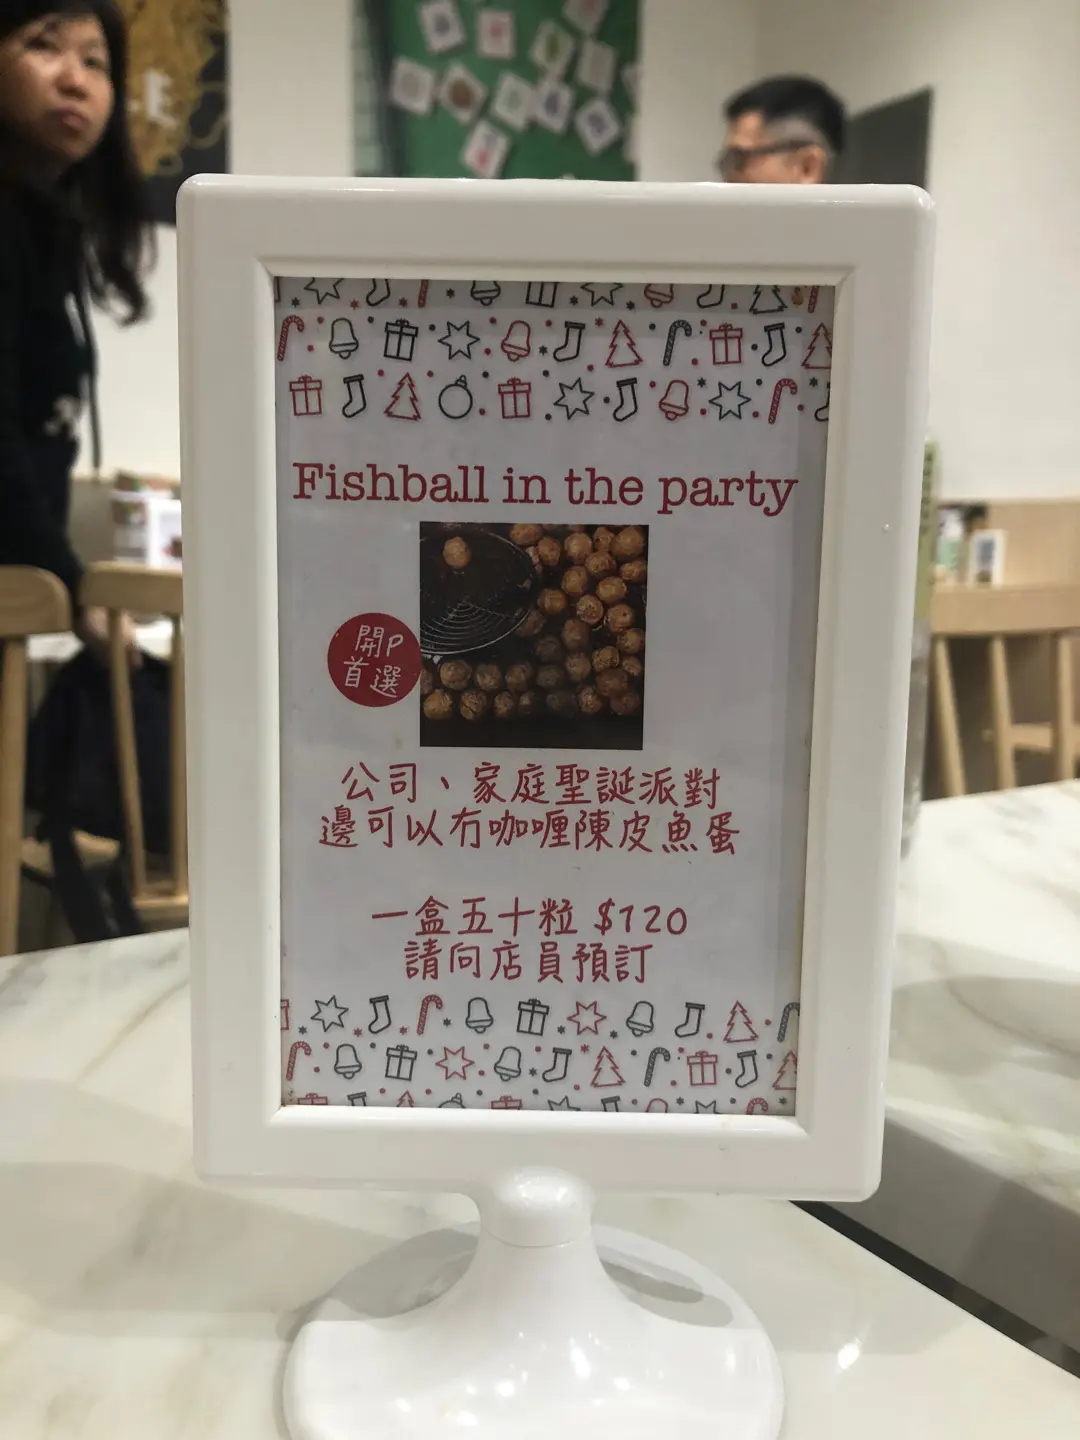 Fishball in the party
開P
首選
公司、家庭聖誕派對
邊可以冇咖喱陳皮魚蛋
一盒五十粒 $120
請向店員預訂